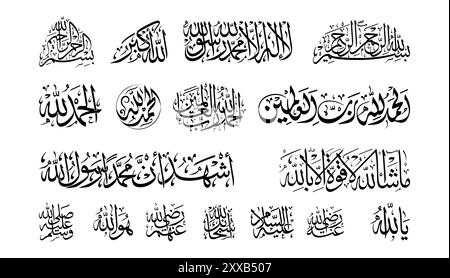 بسم الله الرحمن الرحيم لا إله إلا الله محمد رسول الله الله أكبر بسم الله الرحمن الرحيم
الحمد لله رب العالمين الحمد لله رب العالمين الحمد لله الحمد لله
ما شاء الله لا قوة إلا بالله أشهد أن محمدا رسول الله
يا الله رضي الله عنه عليه السلام رضي الله عنهم هو الله صلى الله عليه وسلم
alamy
Image ID: 2XXB507
www.alamy.com